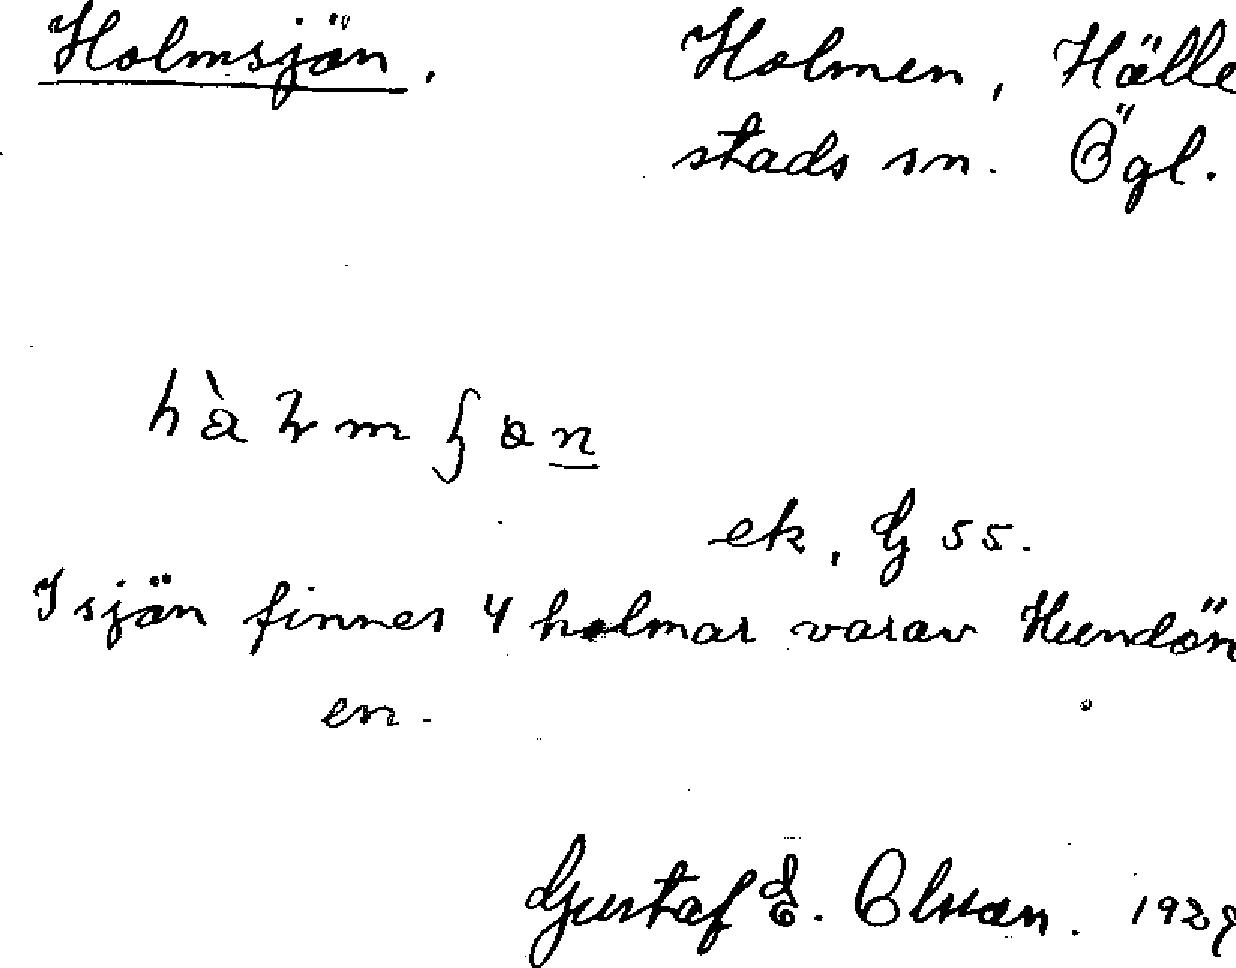 Holmsjön. Holmen, Hälle
stads sn. Ögl.
ek. G 55.
I sjön finnes 4 holmar varav Hundön
en.
Gustaf E. Olsson. 1929